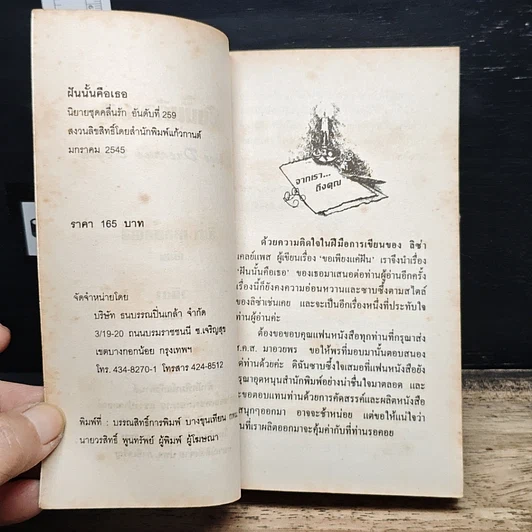 ฝันนั้นคือเธอ
นิยายชุดคลื่นรัก อันดับที่ 259
สงวนลิขสิทธิ์โดยสำนักพิมพ์แก้วกานต์
มกราคม 2545
ราคา 165 บาท
จัดจำหน่ายโดย
บริษัท ธนบรรณปิ่นเกล้า จำกัด
3/19-20 ถนนบรมราชชนนี ซ.เจริญสุข
เขตบางกอกน้อย กรุงเทพฯ
โทร. 434-8270-1 โทรสาร 424-8512
พิมพ์ที่ : บรรณสิทธิ์การพิมพ์ บางขุนเทียน
นายวรสิทธิ์ พูนทรัพย์ ผู้พิมพ์ ผู้โฆษณา
จากเรา...
ถึงคุณ
ด้วยความติดใจในฝีมือการเขียนของ ลิซ่า
เคลย์แพส ผู้เขียนเรื่อง 'ขอเพียงแค่ฝัน' เราจึงนำเรื่อง
'ฝันนั้นคือเธอ' ของเธอมาเสนอต่อท่านผู้อ่านอีกครั้ง
เรื่องนี้ก็ยังคงความอ่อนหวานและซาบซึ้งตามสไตล์
ของลิซ่าเช่นเคย และจะเป็นอีกเรื่องหนึ่งที่ประทับใจ
ท่านผู้อ่านค่ะ
ต้องขอขอบคุณแฟนหนังสือทุกท่านที่กรุณาส่ง
ส.ค.ส. มาอวยพร ขอให้พรที่มอบมานั้นตอบสนอง
แด่ท่านด้วยค่ะ ดิฉันซาบซึ้งใจเสมอที่แฟนหนังสือยัง
กรุณาอุดหนุนสำนักพิมพ์อย่างน่าชื่นใจมาตลอด และ
จะขอตอบแทนท่านด้วยการคัดสรรค์และผลิตหนังสือ
สนุกๆออกมา อาจจะช้าหน่อย แต่ขอให้แน่ใจว่า
ที่เราผลิตออกมาจะคุ้มค่ากับที่ท่านรอคอย